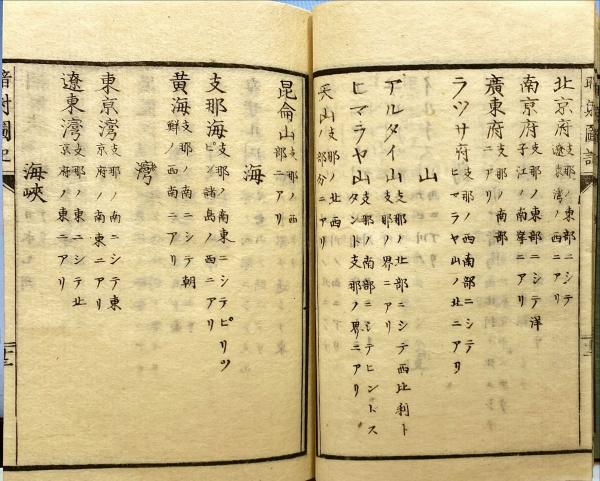 北京府 支那ノ東部ニシテ
遼東湾ノ西ニアリ
南京府 支那ノ東部ニシテ洋
子江ノ南岸ニアリ
廣東府 支那ノ南部
ニアリ
ラツサ府 支那ノ西南部ニシテ
ヒマラヤ山ノ北ニアリ
山
アルタイ山 支那ノ北部ニシテ西比利ト
支那ノ界ニアリ
ヒマラヤ山 支那ノ南部ニシテヒントス
タント支那ノ界ニアリ
天山 支那ノ北西
ノ部分ニアリ
昆侖山 支那ノ西
部ニアリ
海
支那海 支那ノ南東ニシテピリツ
ピン諸島ノ西ニアリ
黄海 支那ノ南ニシテ朝
鮮ノ西南ニアリ
灣
東京灣 支那ノ南ニシテ東
京府ノ南東ニアリ
遼東灣 支那ノ東ニシテ北
京府ノ東ニアリ
海峡
暗射圖記